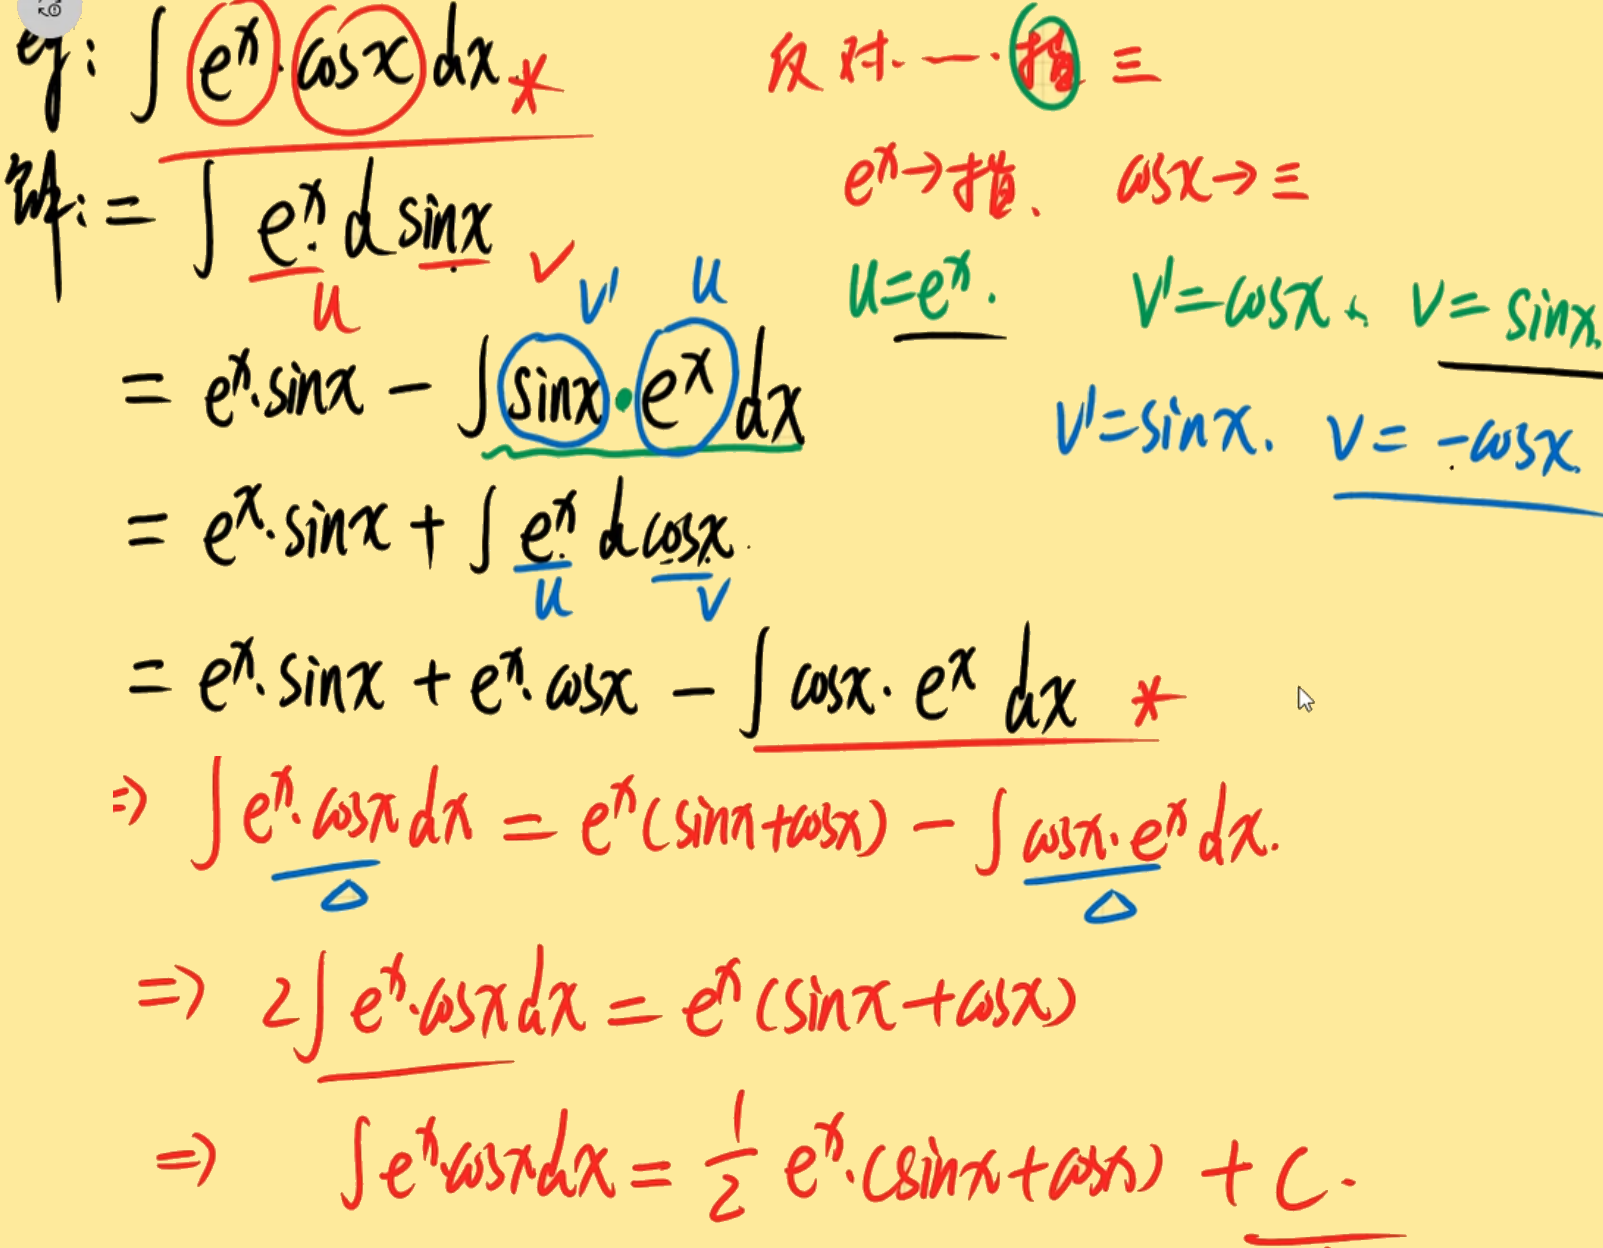 eg: ∫ eˣ · cosx dx *
反 对 — · 指 三
eˣ → 指. cosx → 三
解: = ∫ eˣ d sinx
u v
u = eˣ. v' = cosx. v = sinx.
v' u
= eˣ · sinx − ∫ sinx · eˣ dx
v' = sinx. v = −cosx.
= eˣ · sinx + ∫ eˣ d cosx
u v
= eˣ · sinx + eˣ · cosx − ∫ cosx · eˣ dx *
⇒ ∫ eˣ · cosx dx = eˣ (sinx + cosx) − ∫ cosx · eˣ dx.
△ △
⇒ 2∫ eˣ · cosx dx = eˣ (sinx + cosx)
⇒ ∫ eˣ · cosx dx = 1/2 eˣ · (sinx + cosx) + C.